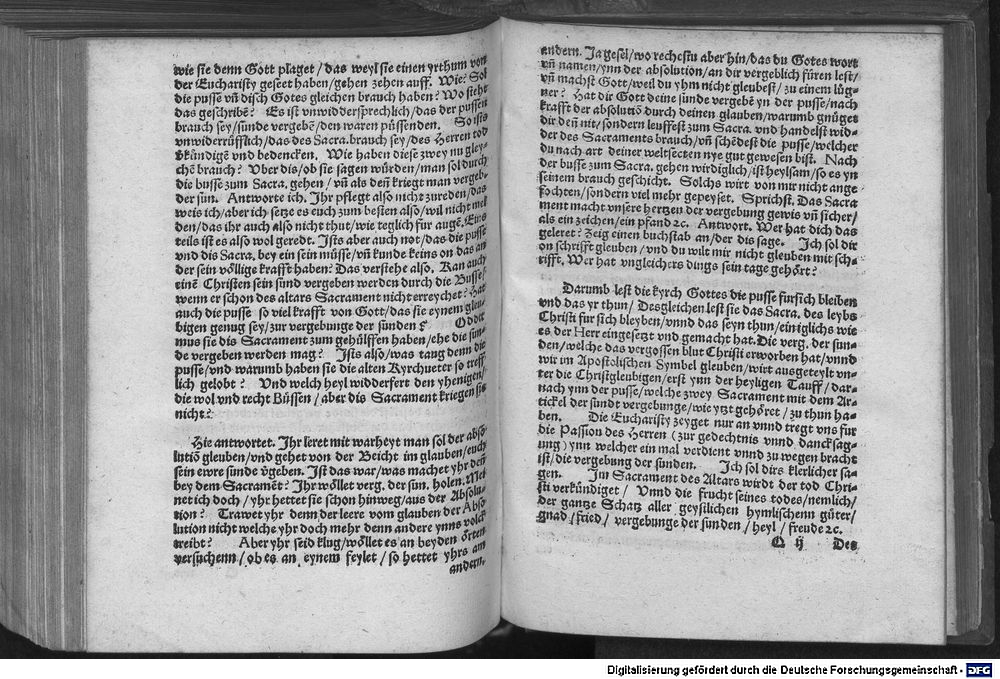 wie sie denn Gott plaget / das weyl sie einen yrthum von
der Eucharisty geseet haben / gehen zehen auff. Wie? Sol
die pusse vñ disch Gotes gleichen brauch haben? Wo steht
das geschribẽ? Es ist vnwiddersprechlich / das der pussen
brauch sey / sünde vergebẽ / den waren püssenden. So ists
vnwiderrüfflich / das des Sacra. brauch sey / des Herren tod
vkündigẽ vnd bedencken. Wie haben diese zwey nu gley-
chẽ brauch? Vber dis / ob sie sagen würden / man sol durch
die busse zum Sacra. gehen / vñ als deñ kriegt man vergeb.
der sun. Antworte ich. Ihr pflegt also nicht zu reden / das
weis ich / aber ich setze es euch zum besten also / wil nicht mel
den / das ihr auch also nicht thut / wie teglich für augẽ. Eins
teils ist es also wol geredt. Ists aber auch not / das die pusse
vnd dis Sacra. bey ein sein müsse / vñ kunde keins on das an
der sein völlige krafft haben? Das verstehe also. Kan auch
einẽ Christen sein sund vergeben werden durch die Busse /
wenn er schon des altars Sacrament nicht erreychet? Hat
auch die pusse so viel krafft von Gott / das sie eynem gleu-
bigen genug sey / zur vergebunge der sünden? Odder
mus sie dis Sacrament zum gehülffen haben / ehe die sün-
de vergeben werden mag? Ists also / was taug denn die
pusse / vnd warumb haben sie die alten Kyrchueter so treff
lich gelobt? Vnd welch heyl widderfert den yhenigen /
die wol vnd recht Büssen / aber dis Sacrament kriegen sie
nicht?
Hie antwortet. Ihr leret mit warheyt man sol der abso
lutiõ gleuben / vnd gehet von der Beicht im glauben / euch
sein ewre sünde v̈geben. Ist das war / was machet yhr deñ
bey dem Sacramẽt? Ihr wöllet verg. der sun. holen. Mei
net ich doch / yhr hettet sie schon hinweg / aus der Absolu-
tion? Trawet yhr denn der leere vom glauben der Abso
lution nicht welche yhr doch mehr denn andere ynns volck
treibt? Aber yhr seid klug / wöllet es an beyden örten
versuchenn / ob es an eynem feylet / so hettet yhrs am
andern.
andern. Ja gesel / wo rechestu aber hin / das du Gotes wort
vñ namen / ynn der absolution / an dir vergeblich füren lest /
vñ machst Gott / weil du yhm nicht gleubest / zu einem lüg-
ner? Hat dir Gott deine sünde vergebẽ yn der pusse / nach
krafft der absolutiõ durch deinen glauben / warumb gnüget
dir deñ nit / sondern leuffest zum Sacra. vnd handelst wid-
der des Sacraments brauch / vñ schẽdest die pusse / welcher
du nach art deiner weltsecten nye gut gewesen bist. Nach
der busse zum Sacra. gehen wirdiglich / ist heylsam / so es yn
seinem brauch geschicht. Solchs wirt von mir nicht ange
fochten / sondern viel mehr gepreyset. Sprichst. Das Sacra
ment macht vnsere hertzen der vergebung gewis vñ sicher /
als ein zeichen / ein pfand ꝛc. Antwort. Wer hat dich das
geleret? Zeig einen buchstab an / der dis sage. Ich sol dir
on schrifft gleuben / vnd du wilt mir nicht gleuben mit sch-
rifft. Wer hat vngleichers dings sein tage gehört?
Darumb lest die kyrch Gottes die pusse fursich bleiben
vnd das yr thun / Desgleichen lest sie das Sacra. des leybs
Christi fur sich bleyben / vnnd das seyn thun / eintiglichs wie
es der Herr eingesetzt vnd gemacht hat. Die verg. der sun-
den / welche das vergossen blut Christi erworben hat / vnnd
wir im Apostolischen Symbel gleuben / wirt ausgeteylt vn-
ter die Christgleubigen / erst ynn der heyligen Tauff / dar-
nach ynn der pusse / welche zwey Sacrament mit dem Ar-
tickel der sundt vergebunge / wie ytzt gehöret / zu thun ha-
ben. Die Eucharisty zeyget nur an vnnd tregt vns fur
die Passion des Herren (zur gedechtnis vnnd dancksag-
ung) ynn welcher ein mal verdient vnnd zu wegen bracht
ist / die vergebung der sunden. Ich sol dirs klerlicher sa-
gen. Im Sacrament des Altars wirdt der tod Chri-
sti verkündiget / Vnnd die frucht seines todes / nemlich /
der gantze Schatz aller geystlichen hymlischenn güter /
gnad / fried / vergebunge der sunden / heyl / freude ꝛc.
Q ij Des
Digitalisierung gefördert durch die Deutsche Forschungsgemeinschaft - DFG